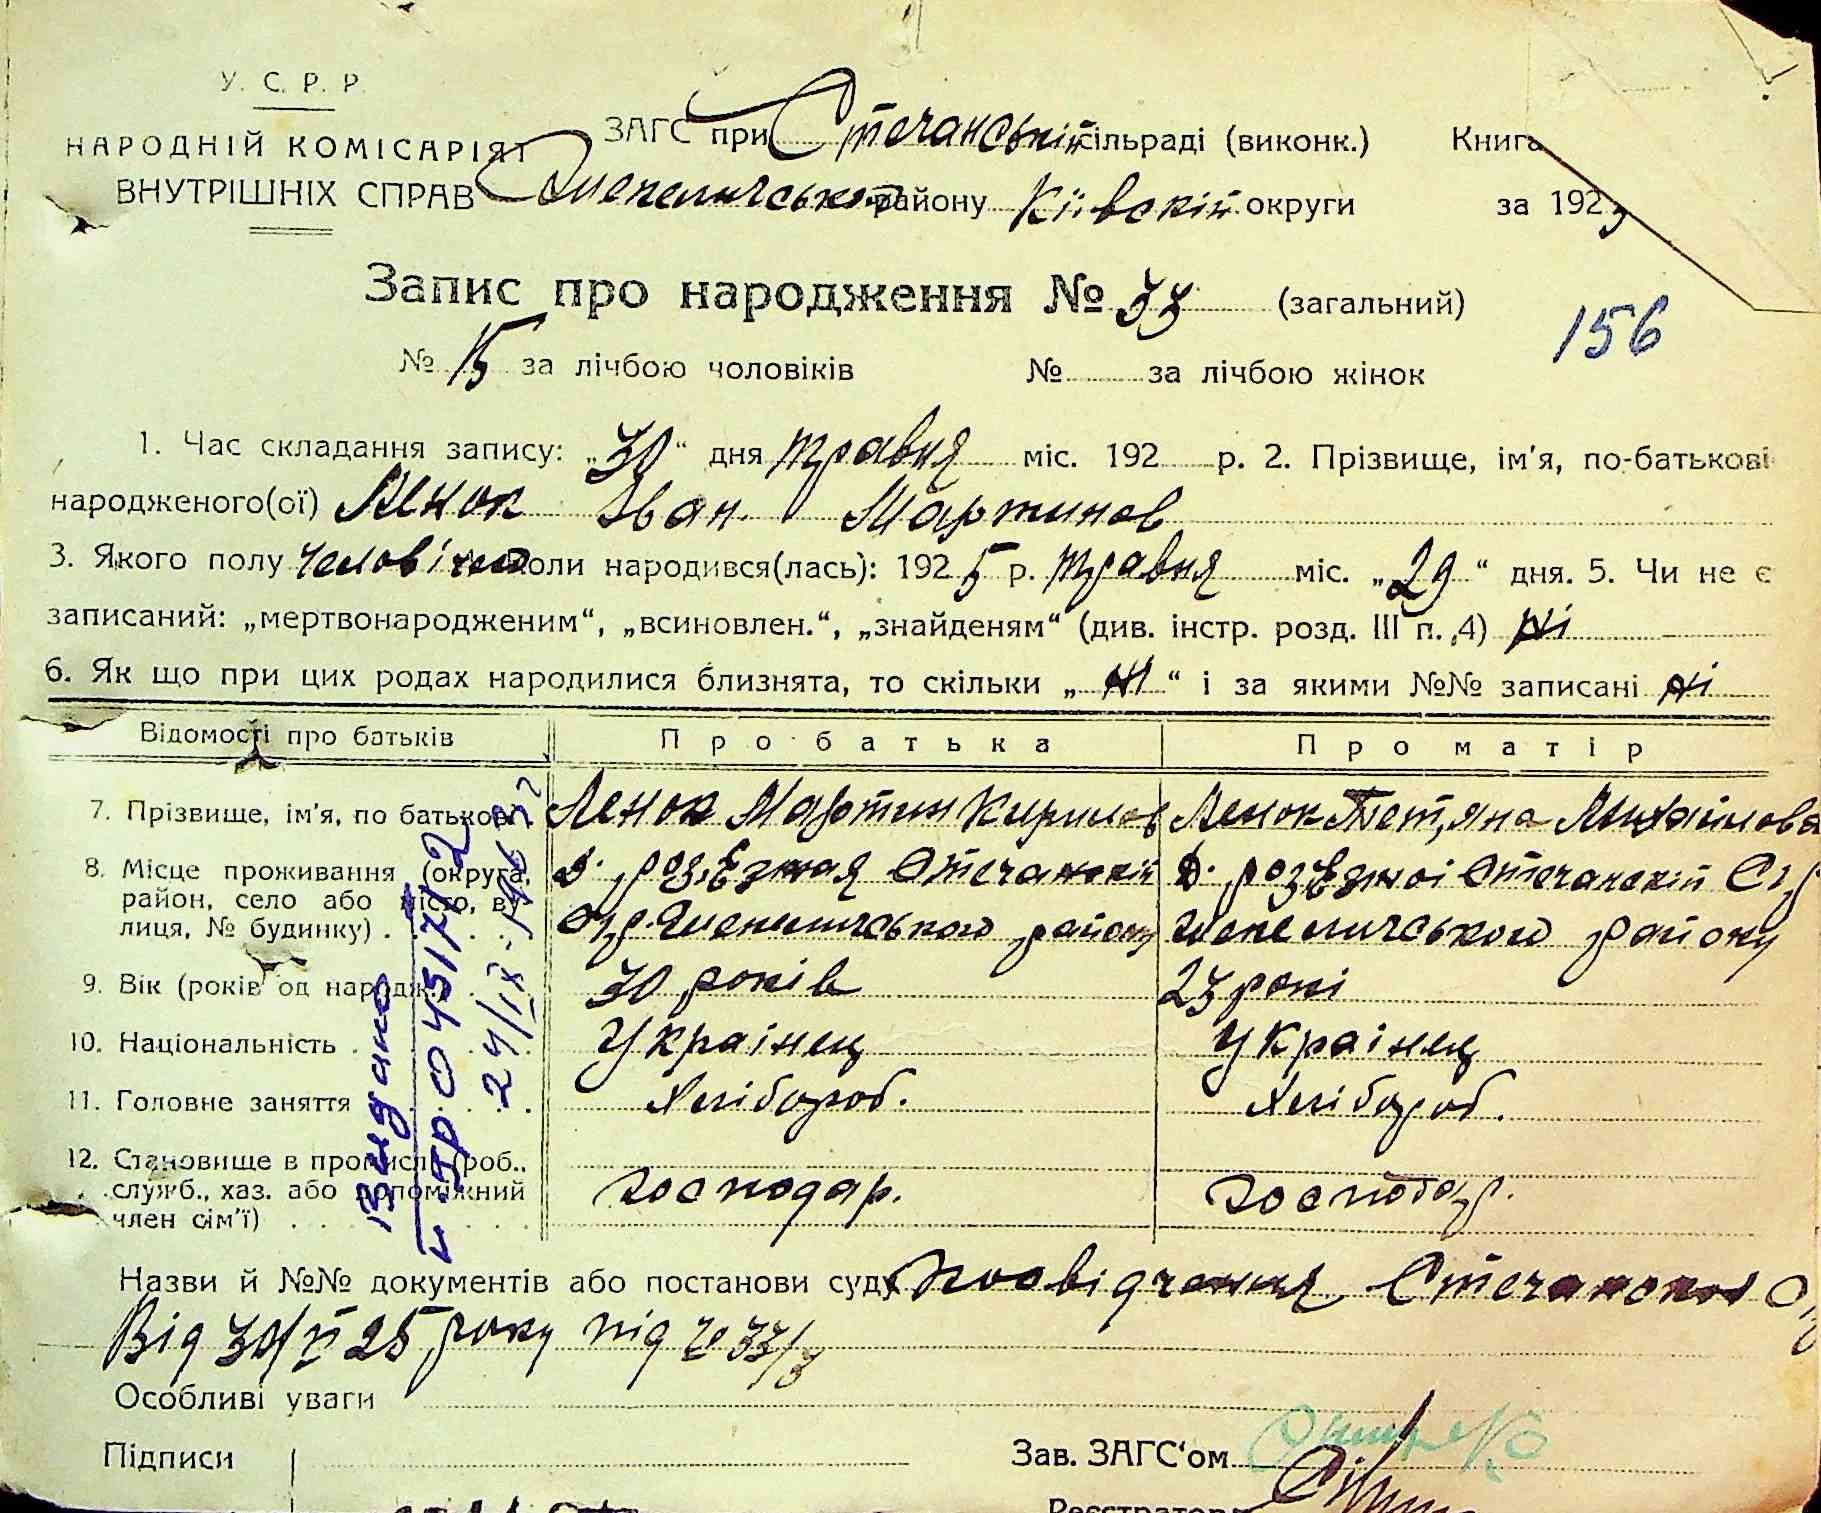 У. С. Р. Р.
НАРОДНІЙ КОМІСАРІЯТ
ВНУТРІШНІХ СПРАВ
ЗАГС при Стечанській сільраді (виконк.) Книга
Шепеличського району Київскій округи за 192
Запис про народження № 33 (загальний)
156
№ 15 за лічбою чоловіків № за лічбою жінок
1. Час складання запису: „30“ дня травня міс. 192 р. 2. Прізвище, ім'я, по-батькові
народженого(ої) Ленок Іван Мартинов
3. Якого полу человічого коли народився(лась): 1925 р. травня міс. „29“ дня. 5. Чи не є
записаний: „мертвонародженим“, „всиновлен.“, „знайденям“ (див. інстр. розд. III п. 4) ні
6. Як що при цих родах народилися близнята, то скільки „ні“ і за якими №№ записані ні
Відомості про батьків Про батька Про матір
7. Прізвище, ім'я, по батькові Ленок Мартин Кирилов Ленок Тетяна Михайлова
8. Місце проживання (округа, Д. розЕзжая Стечанскій Д. розЕзжоі Стечанскій С/р
район, село або місто, ву-
лиця, № будинку) С/р. Шепеличського району Шепеличського району
9. Вік (років од народж. 30 років 23 рокі
10. Національність Українец Українец
11. Головне заняття Хлібороб. Хлібороб.
12. Становище в промислі (роб.,
служб., хаз. або допоміжний господар. господар.
член сім'ї)
Видано
24/IX-
Назви й №№ документів або постанови суду Посвідчення Стечанскої
Від 30/V 25 року під № 33/3
Особливі уваги
Підписи Зав. ЗАГС'ом
Реєстратор